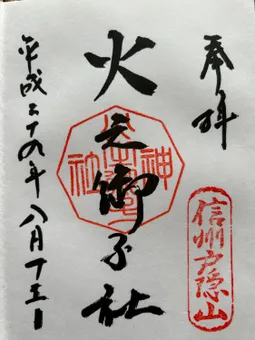 奉拝
信州戸隠山
火之御子社
平成二十九年八月十三日